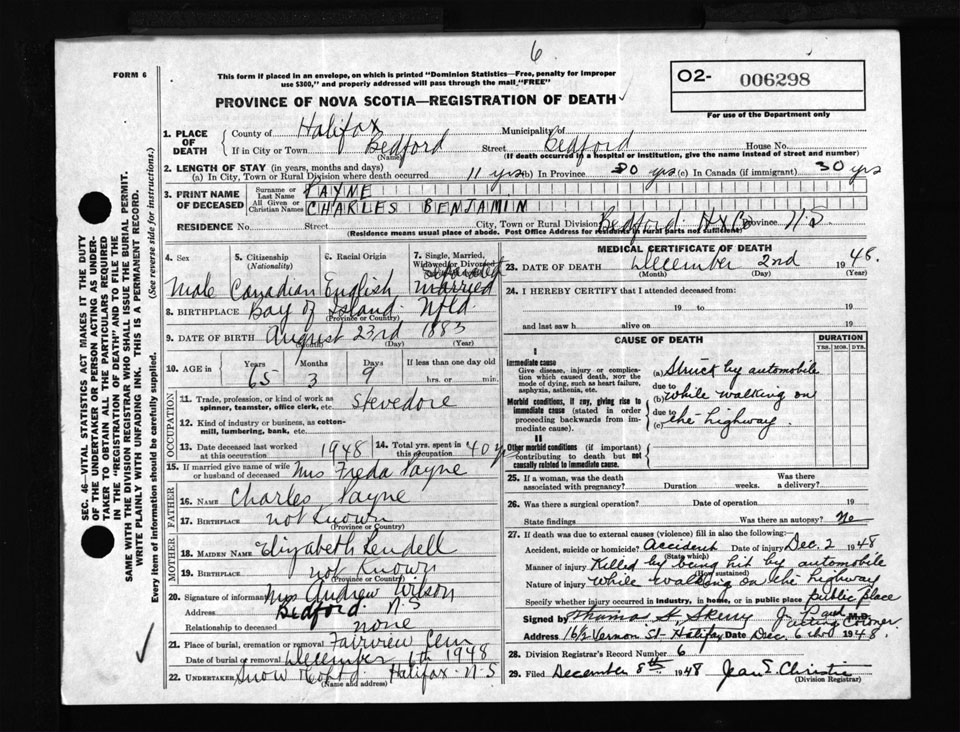 6
FORM 6
This form if placed in an envelope, on which is printed "Dominion Statistics—Free, penalty for improper
use $300," and properly addressed will pass through the mail "FREE"
O2- 006298
For use of the Department only
PROVINCE OF NOVA SCOTIA—REGISTRATION OF DEATH
1. PLACE OF DEATH { County of Halifax Municipality of
If in City or Town Bedford (Name) Street Bedford House No.
(If death occurred in a hospital or institution, give the name instead of street and number)
2. LENGTH OF STAY (in years, months and days)
(a) In City, Town or Rural Division where death occurred 11 yrs (b) In Province 30 yrs (c) In Canada (if immigrant) 30 yrs
3. PRINT NAME OF DECEASED { Surname or Last Name PAYNE
All Given or Christian Names CHARLES BENJAMIN
RESIDENCE No. Street City, Town or Rural Division Bedford Hx Co Province N.S
(Residence means usual place of abode. Post Office Address for residents in rural parts not sufficient)
4. Sex 5. Citizenship (Nationality) 6. Racial Origin 7. Single, Married, Widowed or Divorced
separated
Male Canadian English married
8. BIRTHPLACE Bay of Island Nfld
(Province or Country)
9. DATE OF BIRTH August 23rd 1883
(Month) (Day) (Year)
10. AGE in Years Months Days If less than one day old
65 3 9 hrs. or min.
OCCUPATION
11. Trade, profession, or kind of work as spinner, teamster, office clerk, etc. Stevedore
12. Kind of industry or business, as cotton-mill, lumbering, bank, etc.
13. Date deceased last worked at this occupation 1948 14. Total yrs. spent in this occupation 40 y
15. If married give name of wife or husband of deceased Mrs Freda Payne
FATHER
16. NAME Charles Payne
17. BIRTHPLACE not known
(Province or Country)
MOTHER
18. MAIDEN NAME Elizabeth Lendell
19. BIRTHPLACE not known
(Province or Country)
20. Signature of informant Mrs Andrew Wilson
Address Bedford. N.S
Relationship to deceased none
21. Place of burial, cremation or removal Fairview Cem
Date of burial or removal December 6th 1948
22. UNDERTAKER Snow Halifax N-S
(Name and address)
MEDICAL CERTIFICATE OF DEATH
23. DATE OF DEATH December 2nd 1948.
(Month) (Day) (Year)
24. I HEREBY CERTIFY that I attended deceased from:
19 to 19
and last saw h alive on 19
CAUSE OF DEATH
DURATION
YRS. MOS. DYS.
I
Immediate cause
Give disease, injury or complication which caused death, not the mode of dying, such as heart failure, asphyxia, asthenia, etc.
(a) Struck by automobile
due to
Morbid conditions, if any, giving rise to immediate cause (stated in order proceeding backwards from immediate cause).
(b) while walking on
due to
(c) the highway.
II
Other morbid conditions (if important) contributing to death but not causally related to immediate cause.
25. If a woman, was the death associated with pregnancy? Duration weeks. Was there a delivery?
26. Was there a surgical operation? Date of operation 19
State findings Was there an autopsy? No
27. If death was due to external causes (violence) fill in also the following:
Accident, suicide or homicide? Accident Date of injury Dec. 2 1948
(State which)
Manner of injury Killed by being hit by automobile
(How sustained)
Nature of injury while walking on the highway
Specify whether injury occurred in industry, in home, or in public place public place
Signed by M.D.
Acting Coroner
Address 16½ Vernon St - Halifax Date Dec. 6 1948.
28. Division Registrar's Record Number 6
29. Filed December 8th 1948 Jean E. Christie
(Division Registrar)
SEC. 46—VITAL STATISTICS ACT MAKES IT THE DUTY
OF THE UNDERTAKER OR PERSON ACTING AS UNDERTAKER
TO OBTAIN ALL THE PARTICULARS REQUIRED
IN THE "REGISTRATION OF DEATH" AND TO FILE THE
SAME WITH THE DIVISION REGISTRAR WHO SHALL ISSUE THE BURIAL PERMIT.
WRITE PLAINLY WITH UNFADING INK. THIS IS A PERMANENT RECORD.
Every item of information should be carefully supplied. (See reverse side for instructions.)